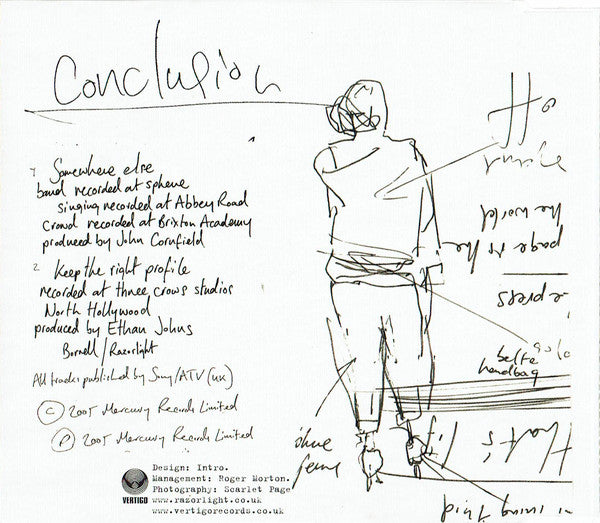 Conclusion
1 Somewhere else
band recorded at sphere
singing recorded at Abbey Road
crowd recorded at Brixton Academy
produced by John Cornfield
2 Keep the right profile
recorded at three crows studios
North Hollywood
produced by Ethan Johns
Borrell/Razorlight
All tracks published by Sony/ATV (UK)
© 2005 Mercury Records Limited
℗ 2005 Mercury Records Limited
the world
page to the
belte
handbag
that's
VERTIGO
Design: Intro.
Management: Roger Morton.
Photography: Scarlet Page
www.razorlight.co.uk
www.vertigorecords.co.uk